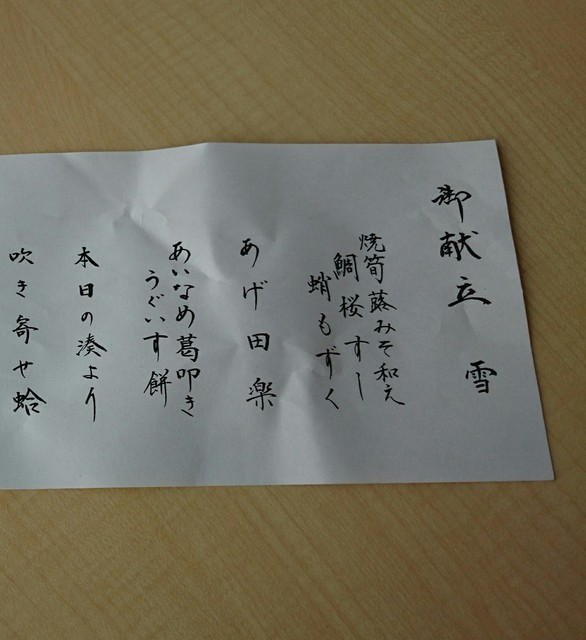 御献立 雪
焼筍蕗みそ和え
鯛桜すし
蛸もずく
あげ田楽
あいなめ葛叩き
うぐいす餅
本日の湊より
吹き寄せ蛤